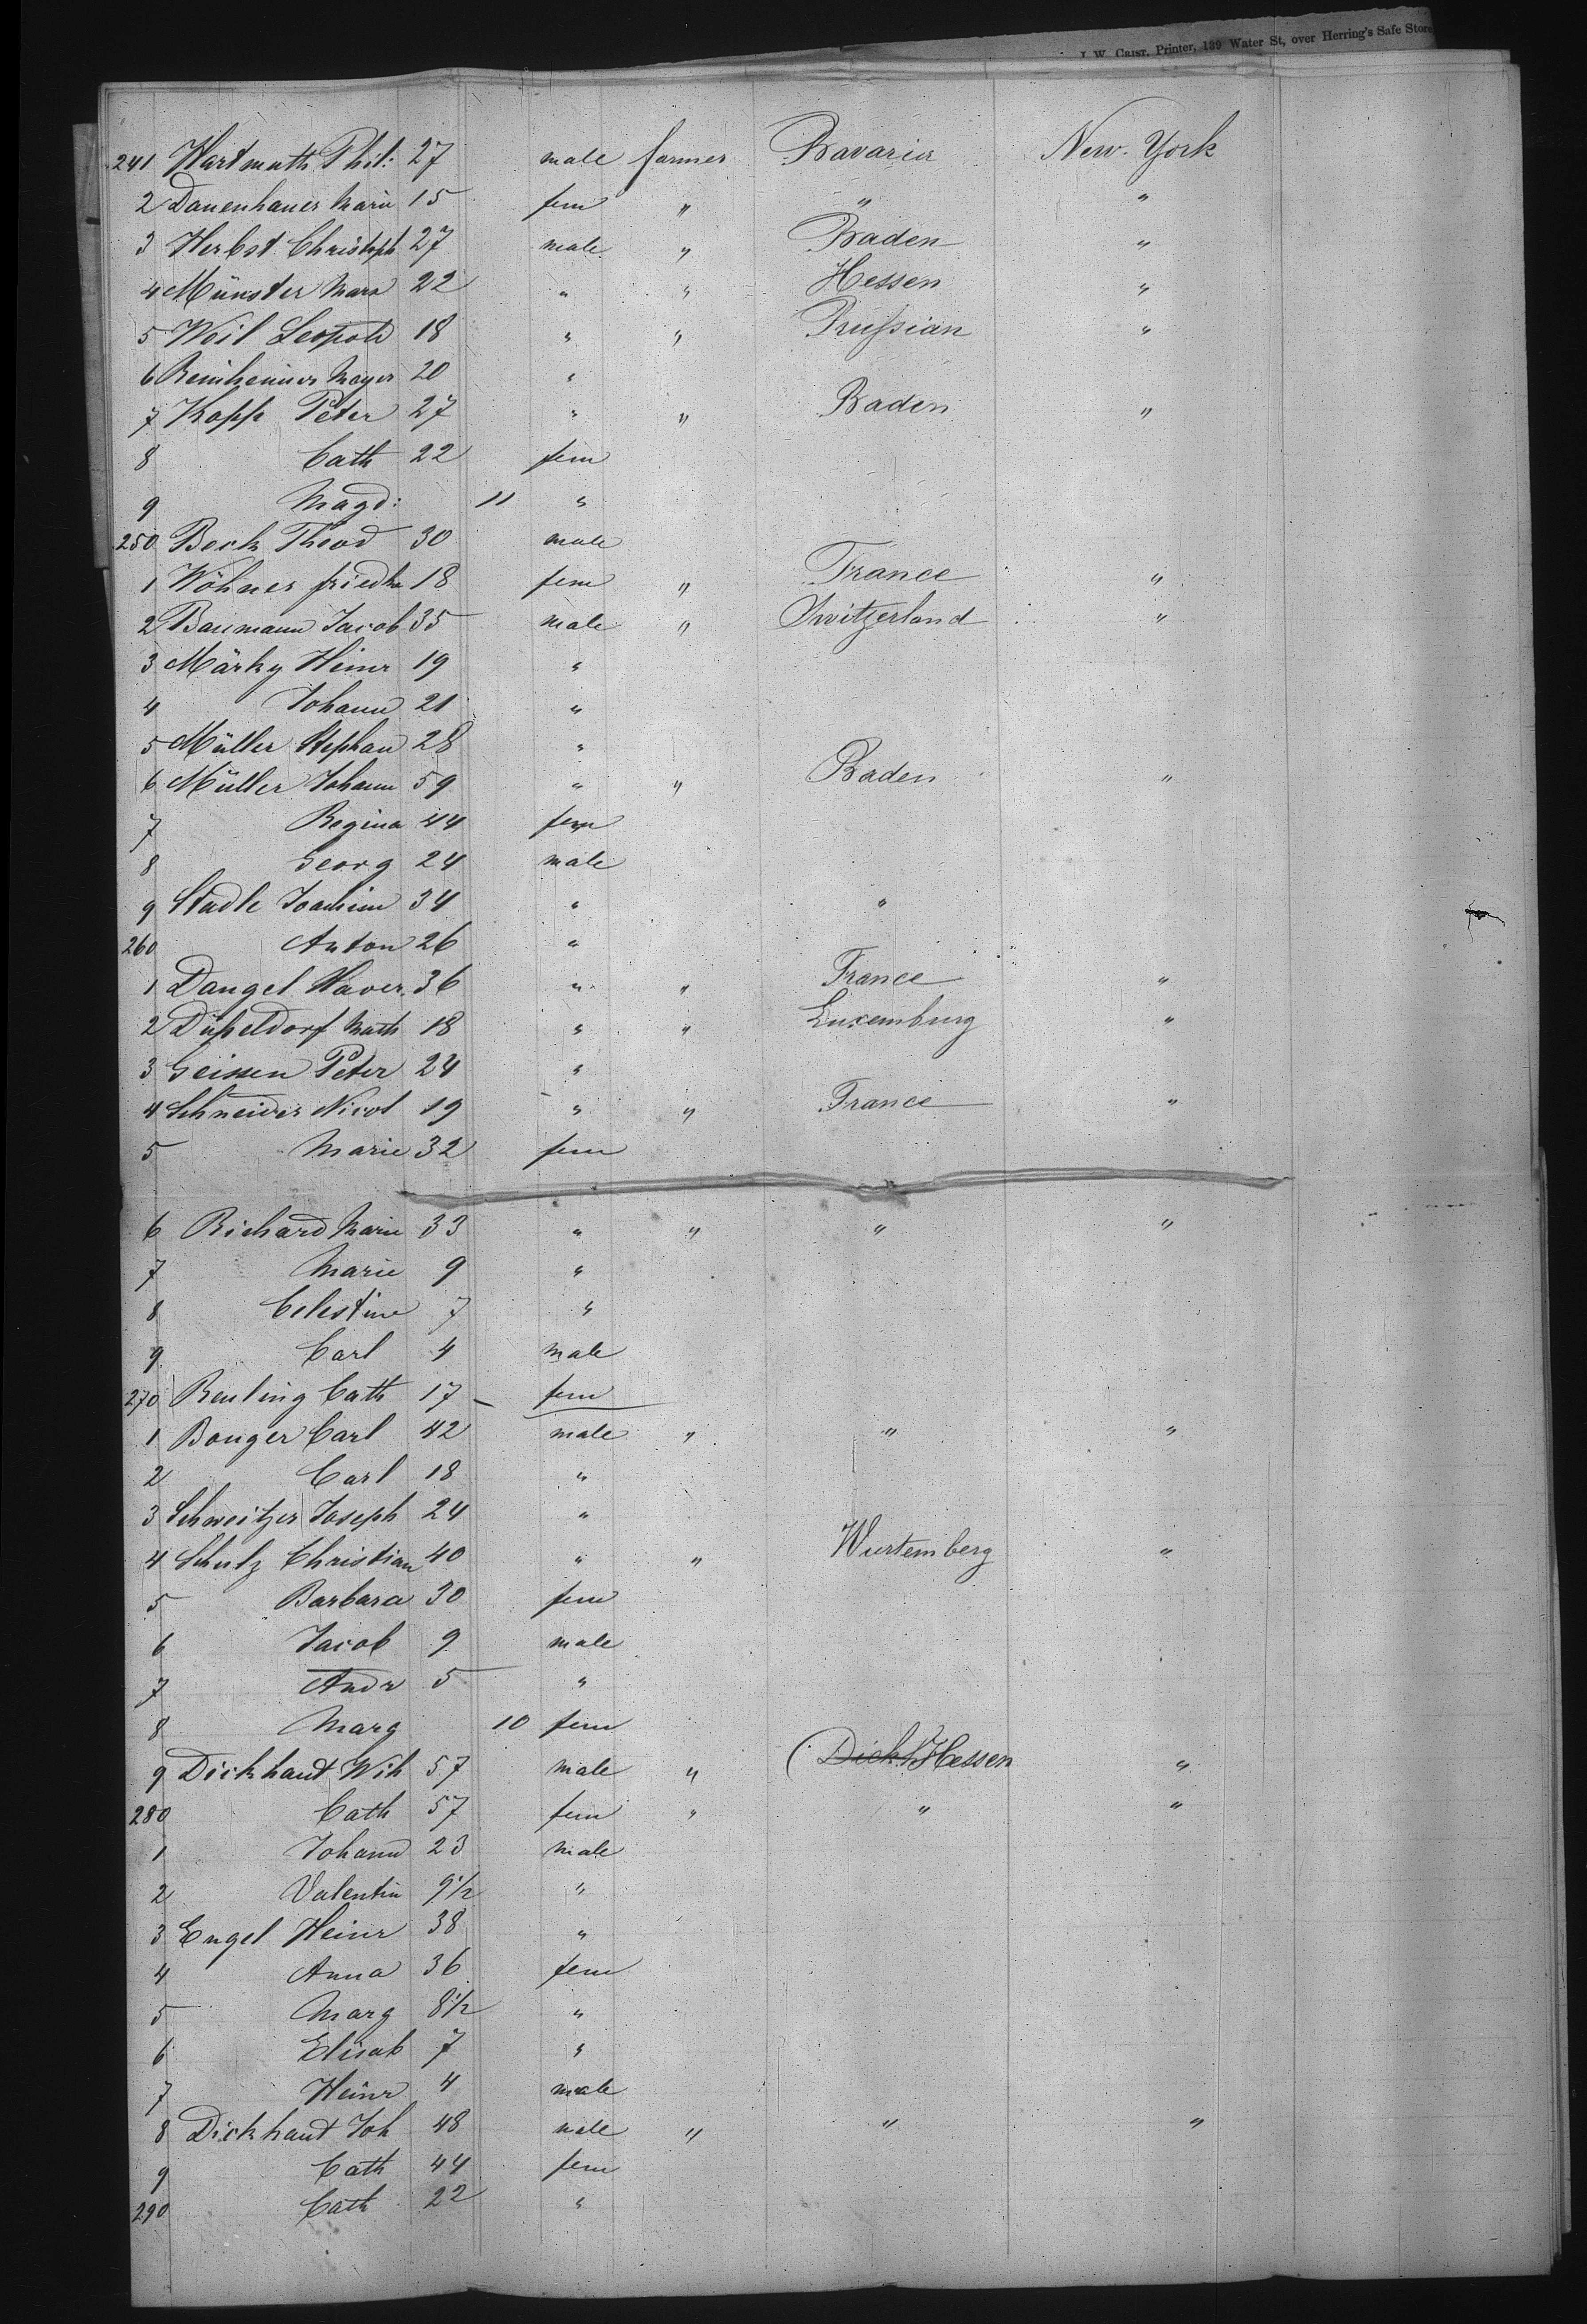 J. W. CRIST, Printer, 189 Water St, over Herring's Safe Store
241 Hartmuth Phil: 27 male farmer Bavaria New-York
2 Dauenhauer Marie 15 fem " " "
3 Herbst Christoph 27 male " Baden "
4 Münster Marx 22 " " Hessen "
5 Weil Leopold 18 " " Prussian "
6 Reinheimer Mayer 20 "
7 Kopp Peter 27 " " Baden "
8 Cath 22 fem
9 Magd: 11 "
250 Beck Theod 30 male
1 Wöhner friedke 18 fem " France "
2 Baumann Jacob 35 male " Switzerland "
3 Märky Heinr 19 "
4 Johann 21 "
5 Müller Stephan 28 "
6 Müller Johann 59 " " Baden "
7 Regina 44 fem
8 Georg 24 male
9 Stadle Joachim 34 " "
260 Anton 26 "
1 Dangel Xaver 36 " " France "
2 Düsseldorf Math 18 " " Luxemburg "
3 Geissen Peter 24 "
4 Schneider Nicol 19 " " France "
5 Marie 32 fem
6 Richard Marie 33 " " " "
7 Marie 9 "
8 Celestine 7 "
9 Carl 4 male
270 Reuling Cath 17 fem
1 Bouger Carl 42 male " " "
2 Carl 18 "
3 Schweitzer Joseph 24 "
4 Schutz Christian 40 " " Wurtemberg "
5 Barbara 30 fem
6 Jacob 9 male
7 Andr 5 "
8 Marg 10 fem
9 Dickhaut Wilh 57 male " (Dickh Hessen "
280 Cath 57 fem " " "
1 Johann 23 male
2 Valentin 9 1/2 "
3 Engel Heinr 38 "
4 Anna 36 fem
5 Marg 8 1/2 "
6 Elisab 7 "
7 Heinr 4 male
8 Dickhaut Joh 48 male " " "
9 Cath 44 fem
290 Cath 22 "